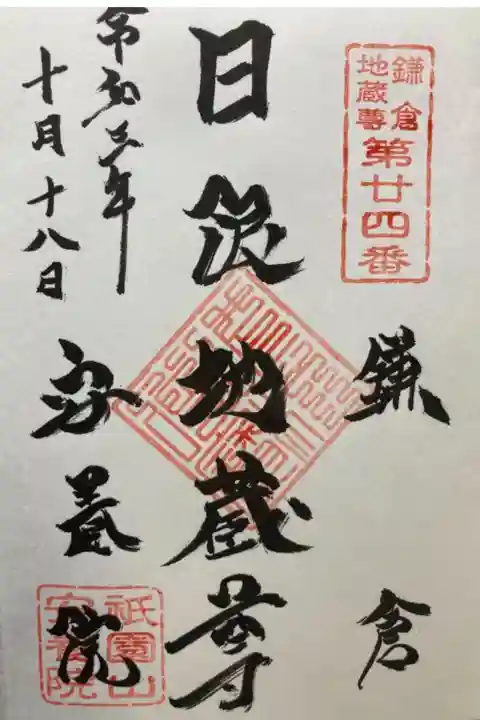 鎌倉
地蔵尊
第廿四番
鎌倉
日限地蔵尊
令和三年
十月十八日
安養院
祇園山
安養院